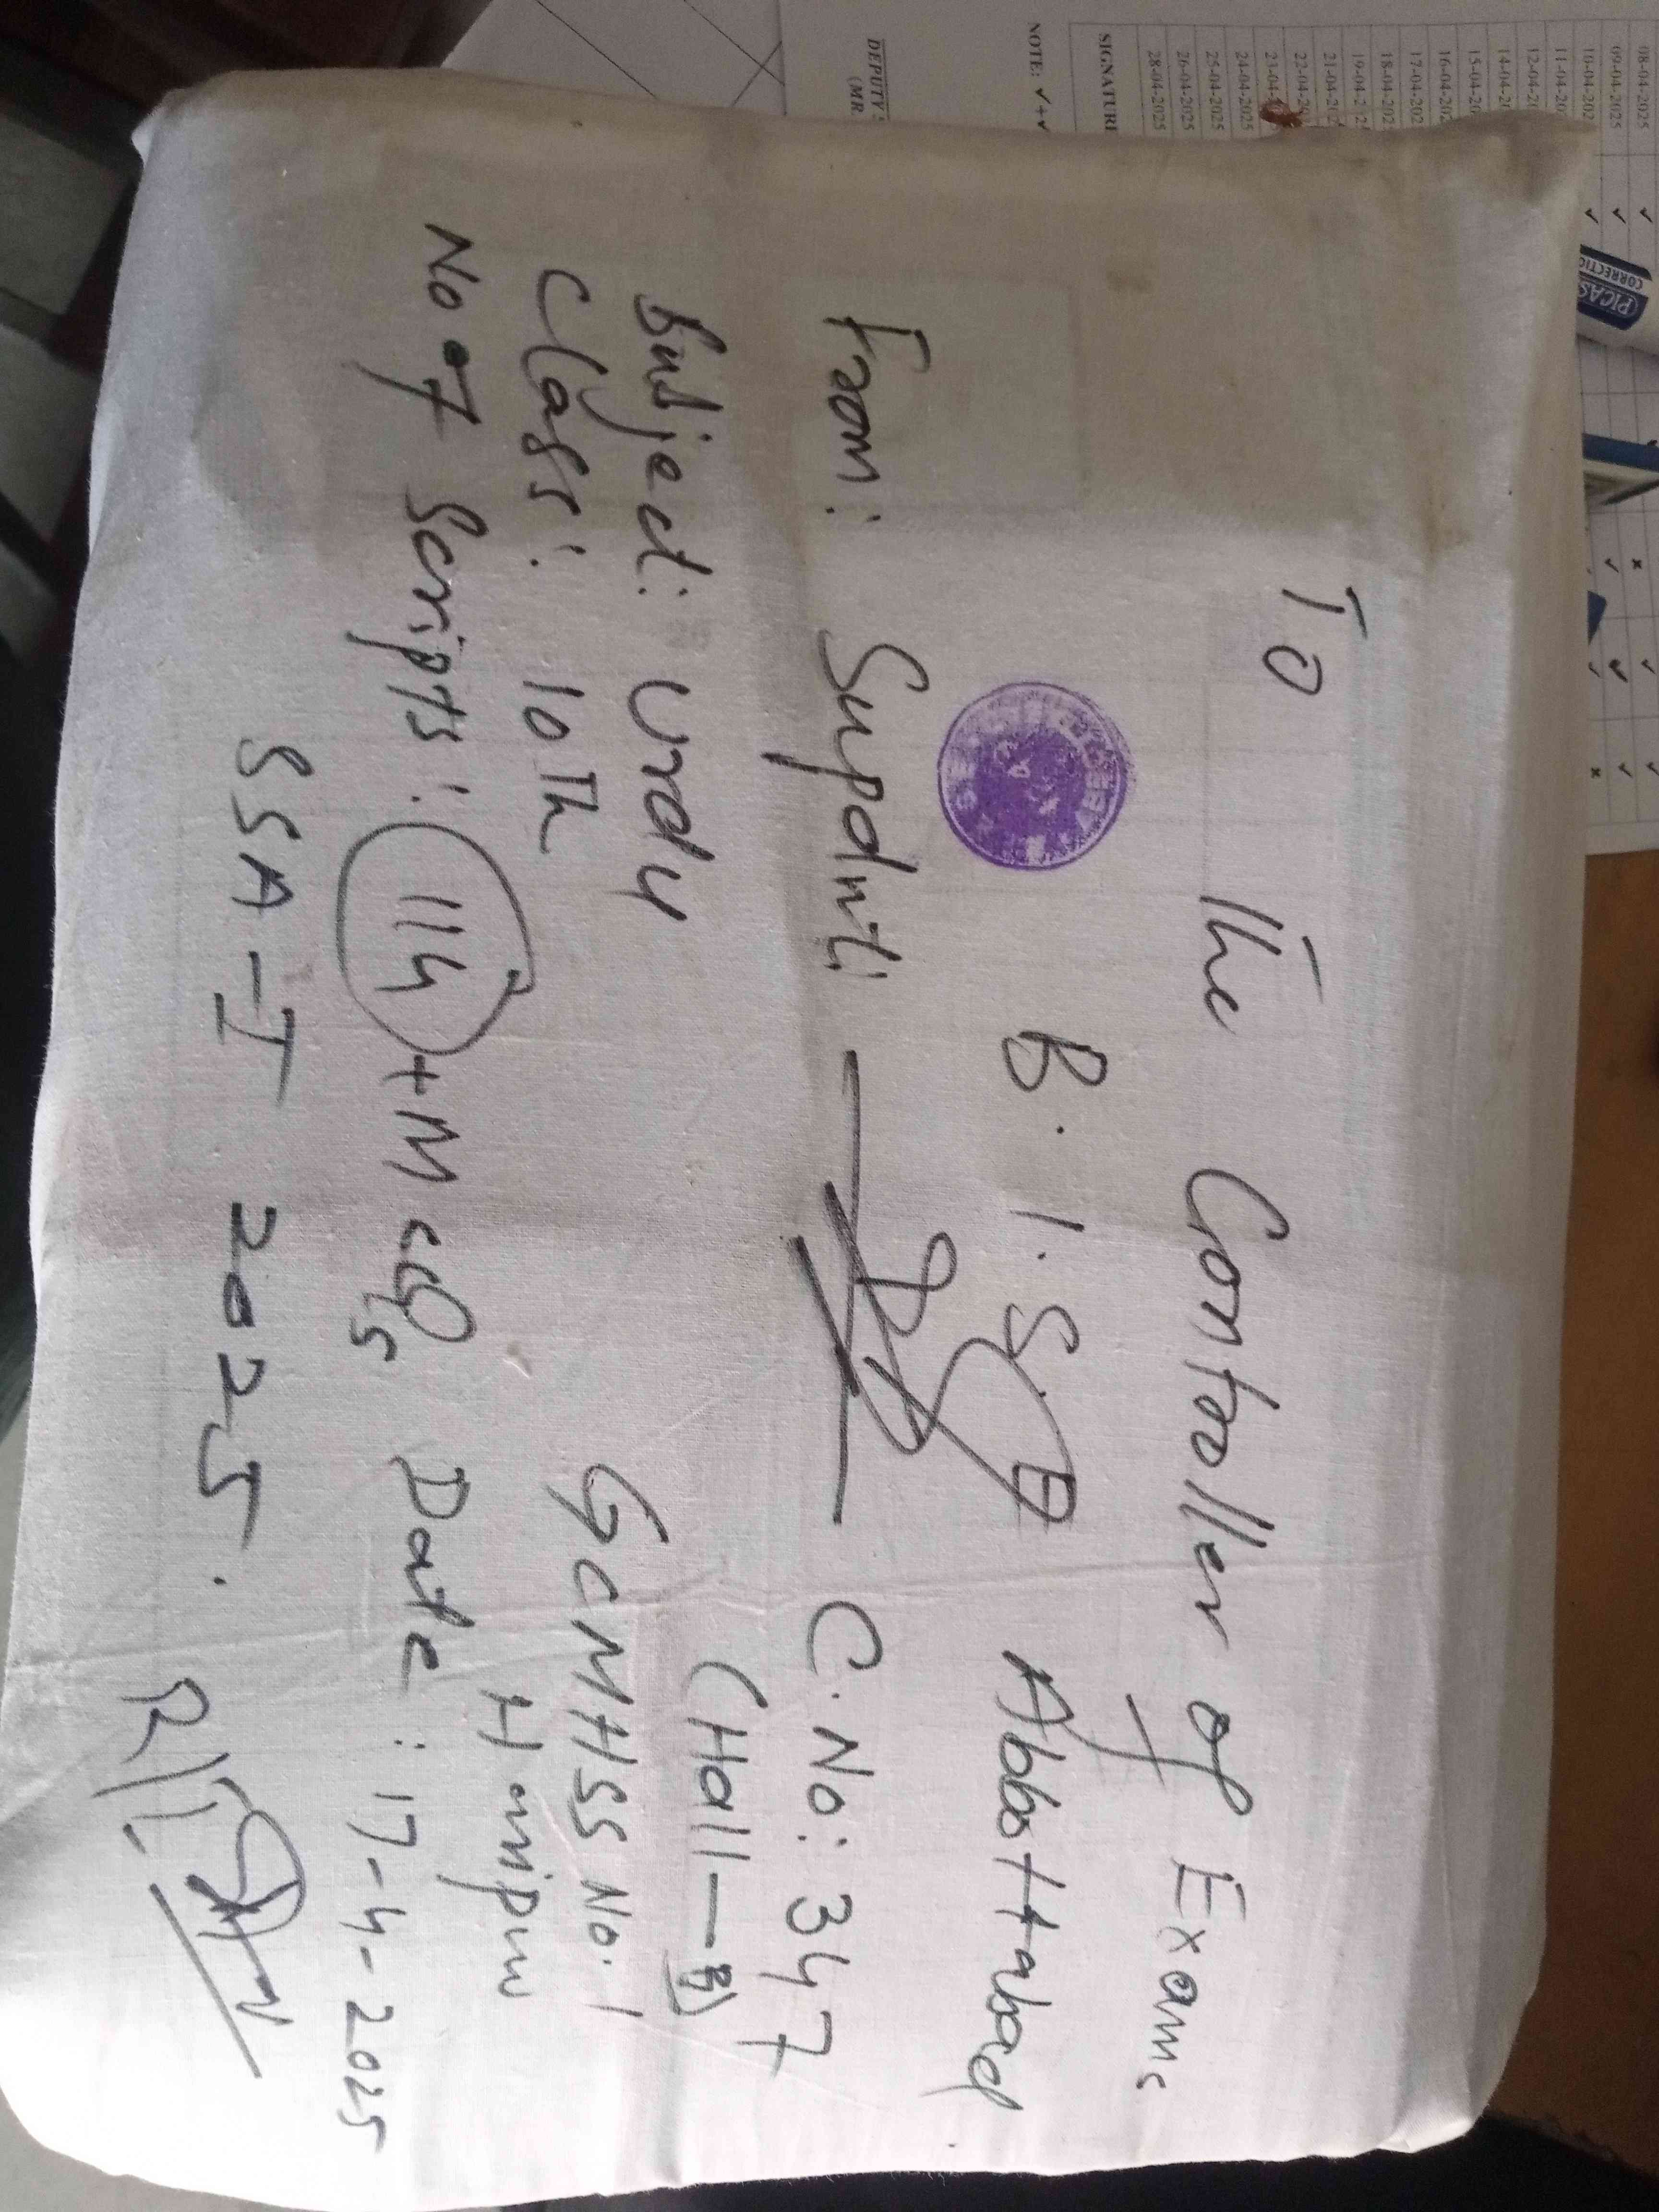 To The Controller of Exams
B.I.S.E Abbottabad
From: Supdnt: C.No: 347
(Hall-B)
Subject: Urdu
Class: 10Th GCMHSS No.1
Haripur
No of Scripts: 114 + MCQs Date: 17-4-2025
SSA-I 2025.
08-04-2025
09-04-2025
10-04-202
11-04-20
12-04-2
14-04-2
15-04-20
16-04-202
17-04-202
18-04-202
19-04-2
21-04-202
22-04-20
23-04-
24-04-2025
25-04-2025
26-04-2025
28-04-2025
SIGNATURE
NOTE: ✓+✓
DEPUTY
(MR.
PICAS
CORRECTIO